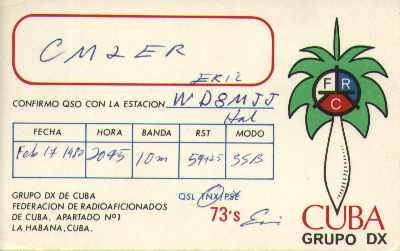 CM2ER
ERIC
CONFIRMO QSO CON LA ESTACION WD8MJJ
Hal
FECHA HORA BANDA RST MODO
Feb 17 1980 2045 10m 59+25 SSB
GRUPO DX DE CUBA
FEDERACION DE RADIOAFICIONADOS
DE CUBA. APARTADO Nº1
LA HABANA, CUBA.
QSL TNX/PSE
73's Eric
F R C
CUBA
GRUPO DX